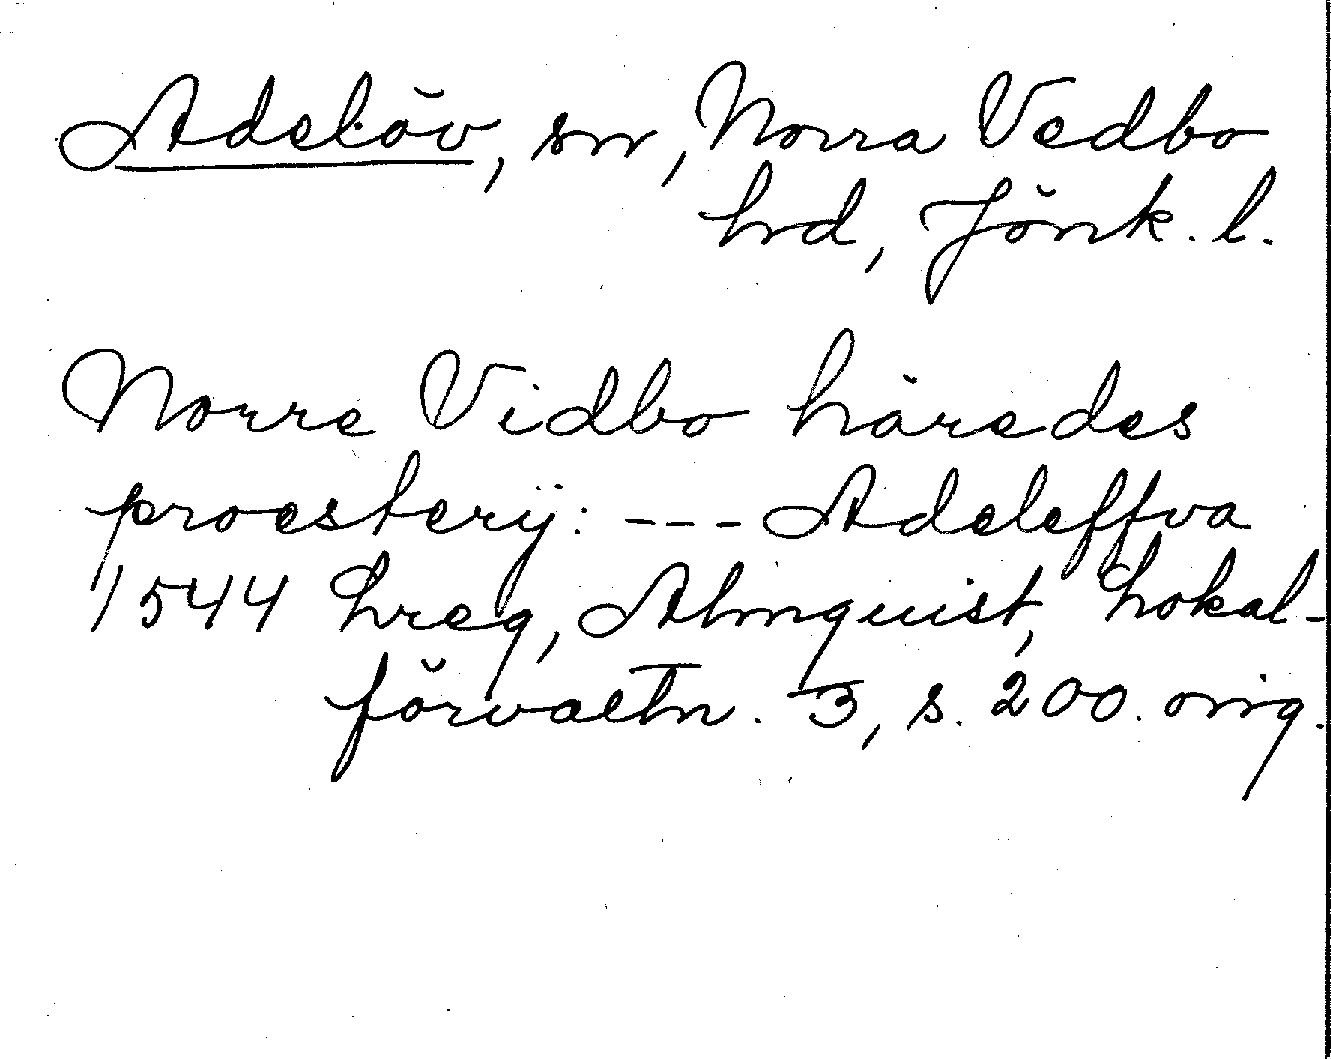 Adelöv, sn, Norra Vedbo
hrd, Jönk. l.
Norre Vidbo häredes
proesterÿ: --- Adeleffva
1544 hreg, Almquist, Lokal-
förvaltn. 3, s. 200. orig.